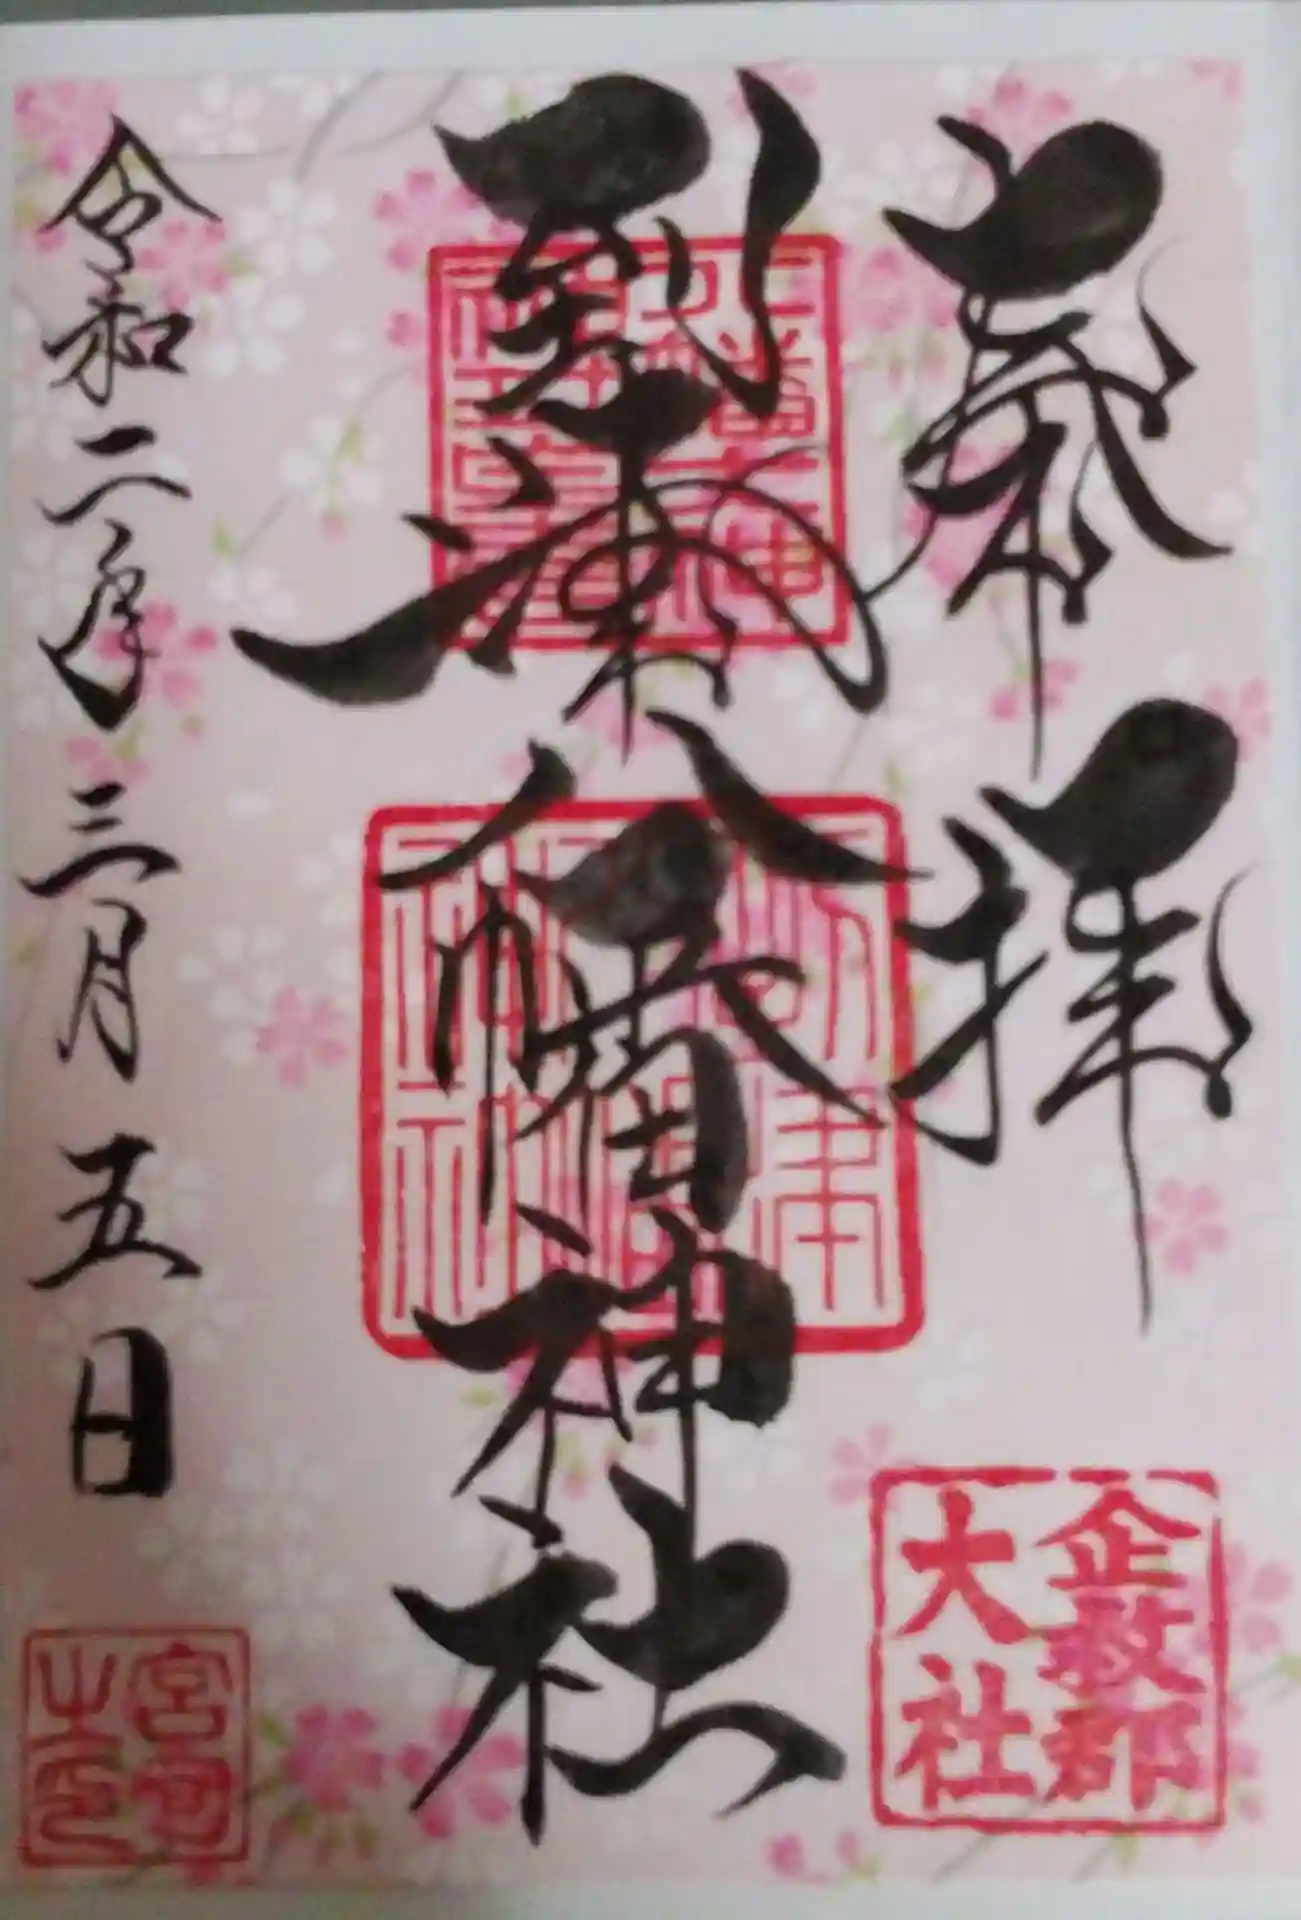 奉拝
企救郡
大社
到津八幡神社
令和二年三月五日
宮司
之印